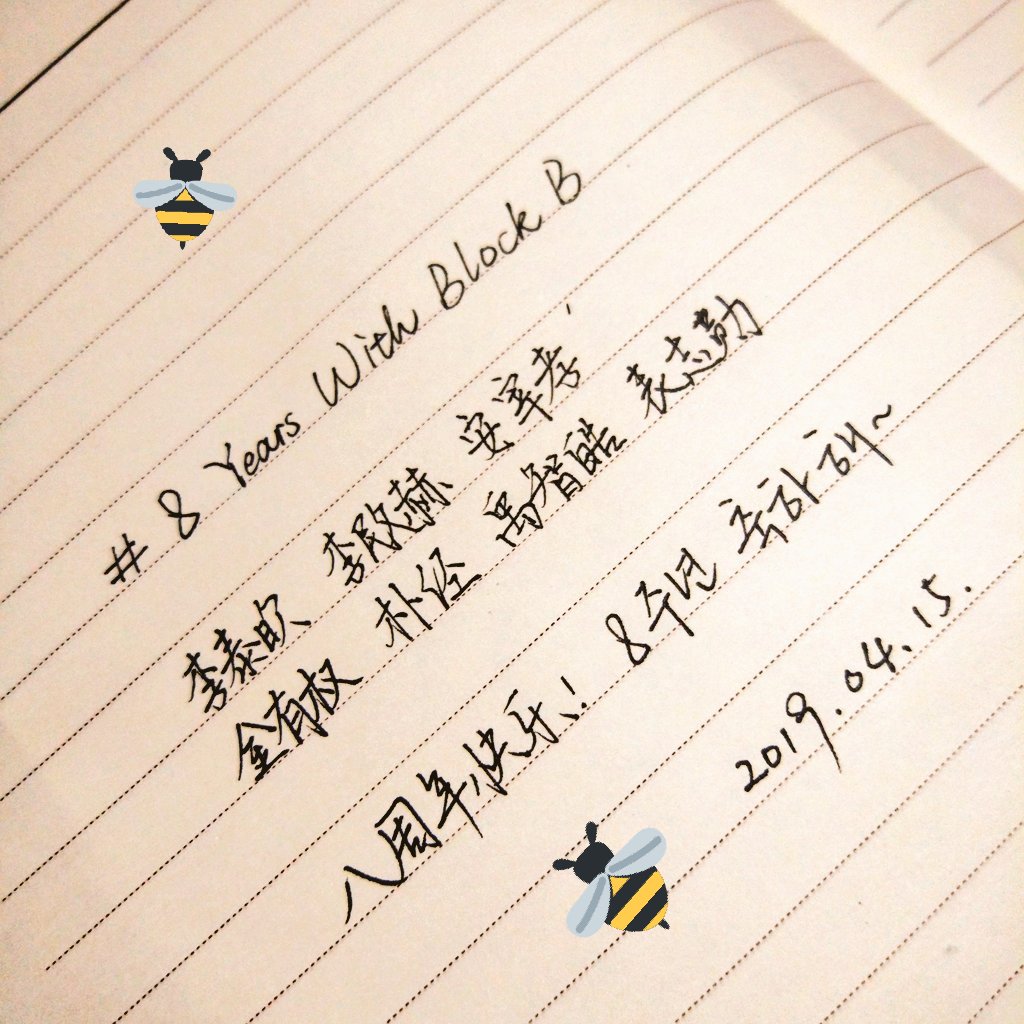 # 8 Years With Block B
李泰欥 李敃赫 安宰孝
金有权 朴经 禹智皓 表志勋
八周年快乐! 8주년 축하해~
2019.04.15.